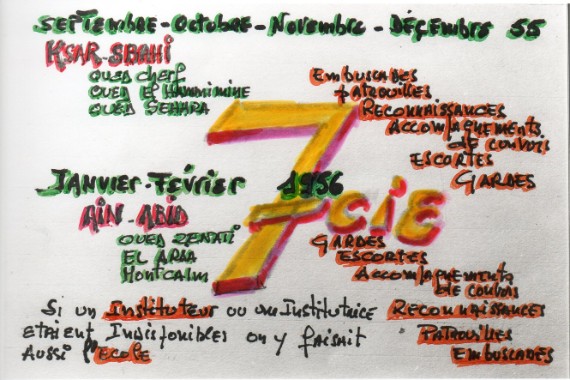 SEPTEMBRE-OCTOBRE-NOVEMBRE-DÉCEMBRE 55
KSAR-SBAHI
OUED CHERF
OUED EL HAMMIMINE
OUED SEHARA
EMBUSCADES
PATROUILLES
RECONNAISSANCES
ACCOMPAGNEMENTS
de CONVOIS
ESCORTES
GARDES
7 CIE
JANVIER-FÉVRIER 1956
AIN-ABID
OUED ZENATI
EL ARIA
MONTCALM
GARDES
ESCORTES
ACCOMPAGNEMENTS
de CONVOIS
RECONNAISSANCES
PATROUILLES
EMBUSCADES
Si un Instituteur ou une Institutrice
étaient Indisponibles on y faisait
aussi l'Ecole